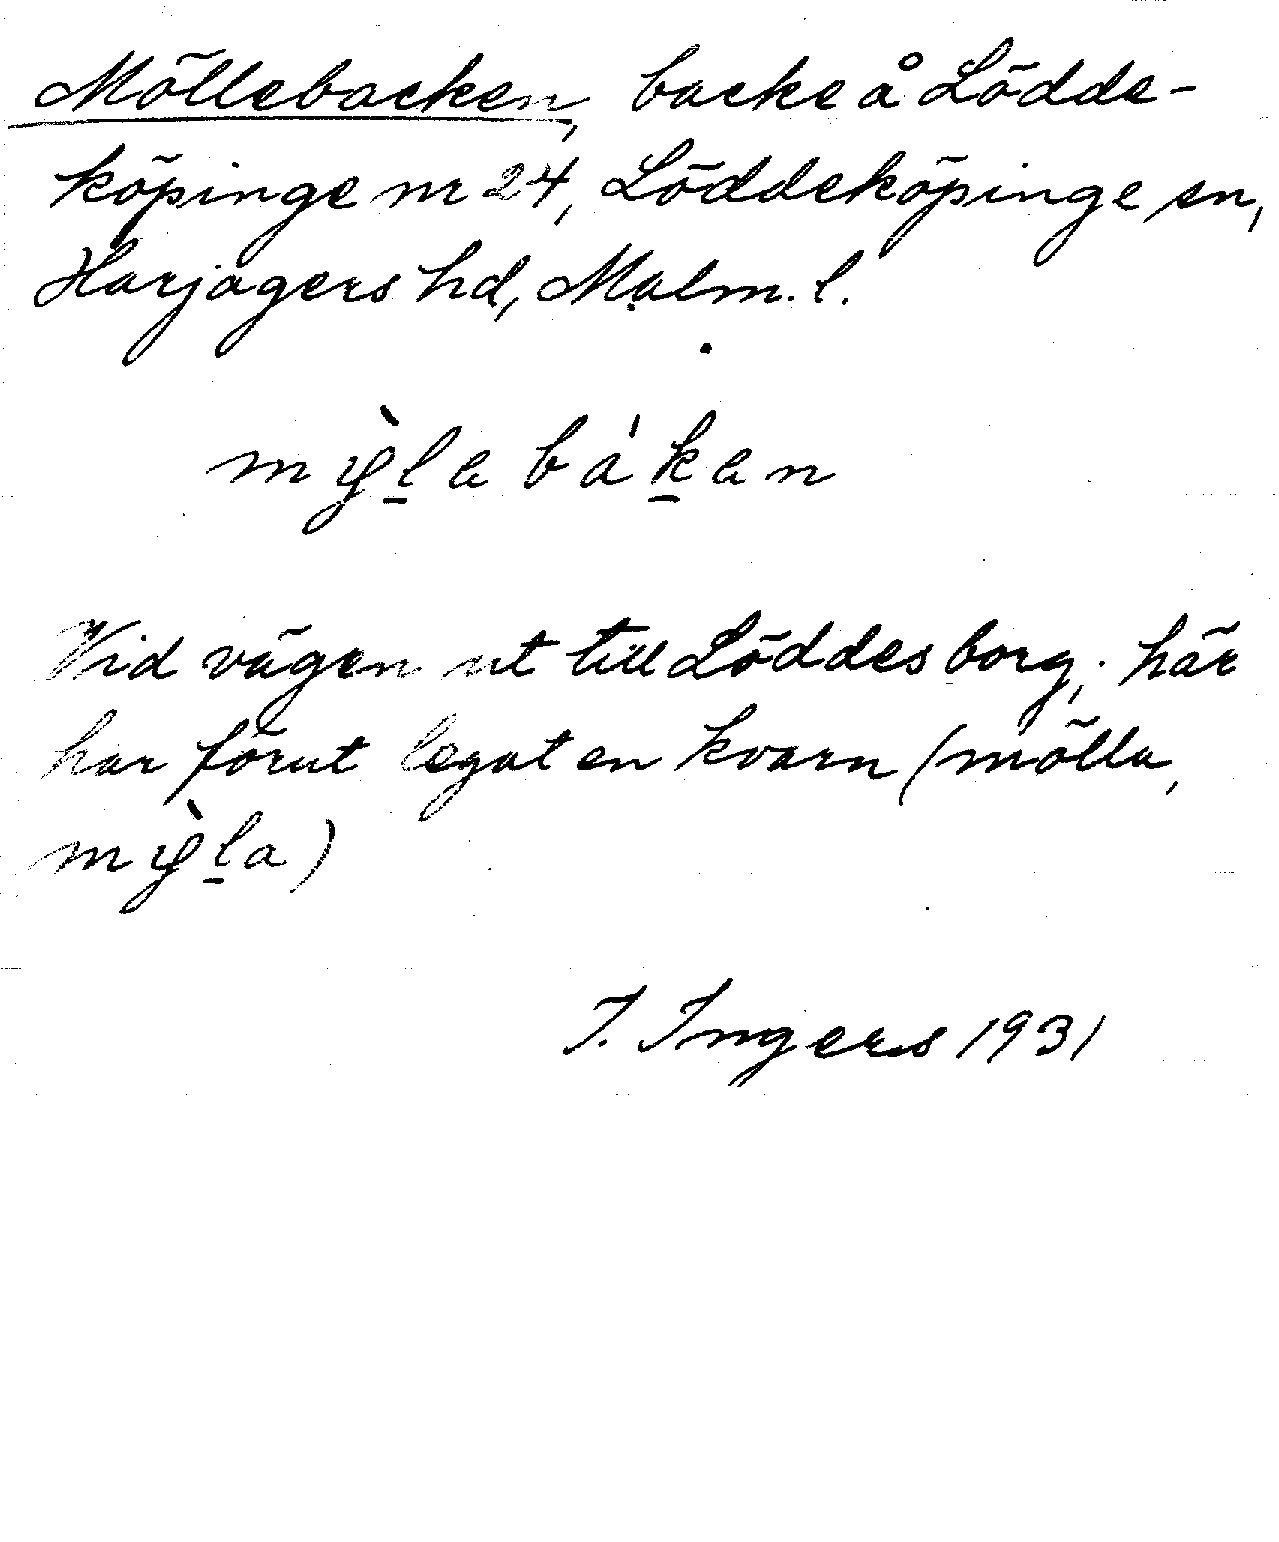 Möllebacken, backe å Lödde-
köpinge nr 24, Löddeköpinge sn,
Harjagers hd, Malm. l.
Vid vägen ut till Löddesborg; här
har förut legat en kvarn (mölla,
I. Ingers 1931